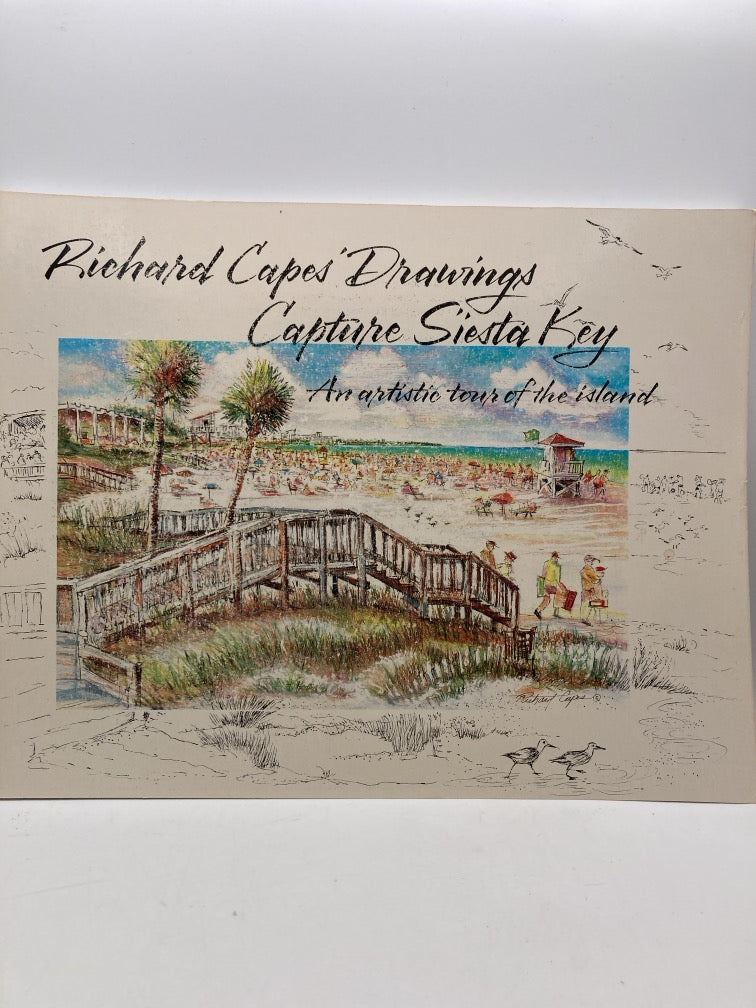 Richard Capes' Drawings
Capture Siesta Key
An artistic tour of the island
Richard Capes ©